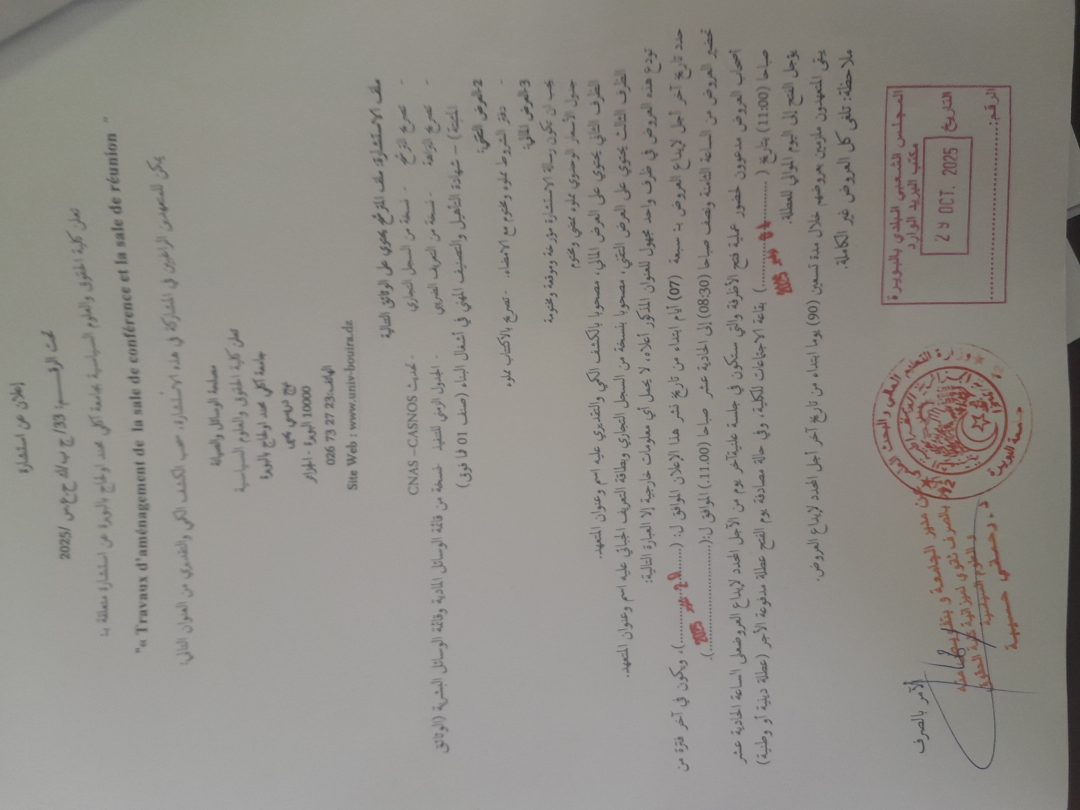 إعلان عن استشارة
تحت الرقـــــم: 33/ ج ب/ك ح.ع.س /2025
تعلن كلية الحقوق والعلوم السياسية بجامعة آكلي محند اولحاج بالبويرة عن استشارة متعلقة بـ:
"« Travaux d'aménagement de la sale de conférence et la sale de réunion "
يمكن للمتعهدين الراغبين في المشاركة في هذه الاستشارة، سحب الكشف الكمي والتقديري من العنوان التالي:
تعلن كلية الحقوق والعلوم السياسية
مصلحة الوسائل والصيانة
جامعة آكلي محند اولحاج بالبويرة
10000 البويرة - الجزائر
الهاتف:23 27 73 026
Site Web : www.univ-bouira.dz
ملف الاستشارة ملف الترشح يحتوي على الوثائق التالية
- تصريح الترشح - نسخة من السجل التجاري - تحديث CNAS –CASNOS
- تصريح النزاهة - نسخة من التعريف الضريبي - الجدول الزمني للتنفيذ نسخة من قائمة الوسائل المادية وقائمة الوسائل البشرية (الوثائق
المثبتة) – شهادة التأهيل والتصنيف المهني في أشغال البناء (صنف 01 فما فوق)
2-العرض التقني:
- دفتر الشروط مملوء ومختوم مع الامضاء. - تصريح بالاكتتاب مملوء
3-العرض المالي:
يجب ان تكون رسالة الاستشارة مؤرخة وموقعة ومختومة
جدول الأسعار الوحدوي مملوء ممضي ومختوم
الظرف الثاني يحتوي على العرض المالي، مصحوبا بالكشف الكمي والتقديري عليه اسم وعنوان المتعهد.
الظرف الثالث يحتوي على العرض التقني، مصحوبا بنسخة من السجل التجاري وبطاقة التعريف الجبائي عليه اسم وعنوان المتعهد.
تودع هذه العروض في ظرف واحد مجهول للعنوان المذكور أعلاه، لا يحمل أي معلومات خارجية إلا العبارة التالية:
حدد تاريخ آخر أجل لإيداع العروض بـ سبعة (07) أيام ابتداء من تاريخ نشر هذا الإعلان الموافق لـ: (......)، ويكون في آخر فترة من
تحضير العروض من الساعة الثامنة ونصف صباحا (08:30) إلى الحادية عشر صباحا (11.00) الموافق لـ:(...... 2025).
أصحاب العروض مدعوون حضور عملية فتح الأظرفة والتي ستكون في جلسة علنيةآخر يوم من الأجل المحدد لإيداع العروضعلى الساعة الحادية عشر
صباحا (11:00) بتاريخ (......) بقاعة الاجتماعات للكلية، وفي حالة مصادفة يوم الفتح عطلة مدفوعة الأجر (عطلة دينية أو وطنية)
يؤجل الفتح إلى اليوم الموالي للعطلة. 2025
يبقى المتعهدون ملزمين بعروضهم خلال مدة تسعين (90) يوما ابتداء من تاريخ آخر أجل المحدد لإيداع العروض.
ملاحظة: تلغى كل العروض غير الكاملة.
الآمر بالصرف
عن مدير الجامعة و
كلية الحقوق
و العلوم السياسية
وزارة التعليم العالي والبحث العلمي
جامعة البويرة
المجلس الشعبي البلدي بالبويرة
مكتب البريد الوارد
التاريخ 29 OCT. 2025
الرقم: